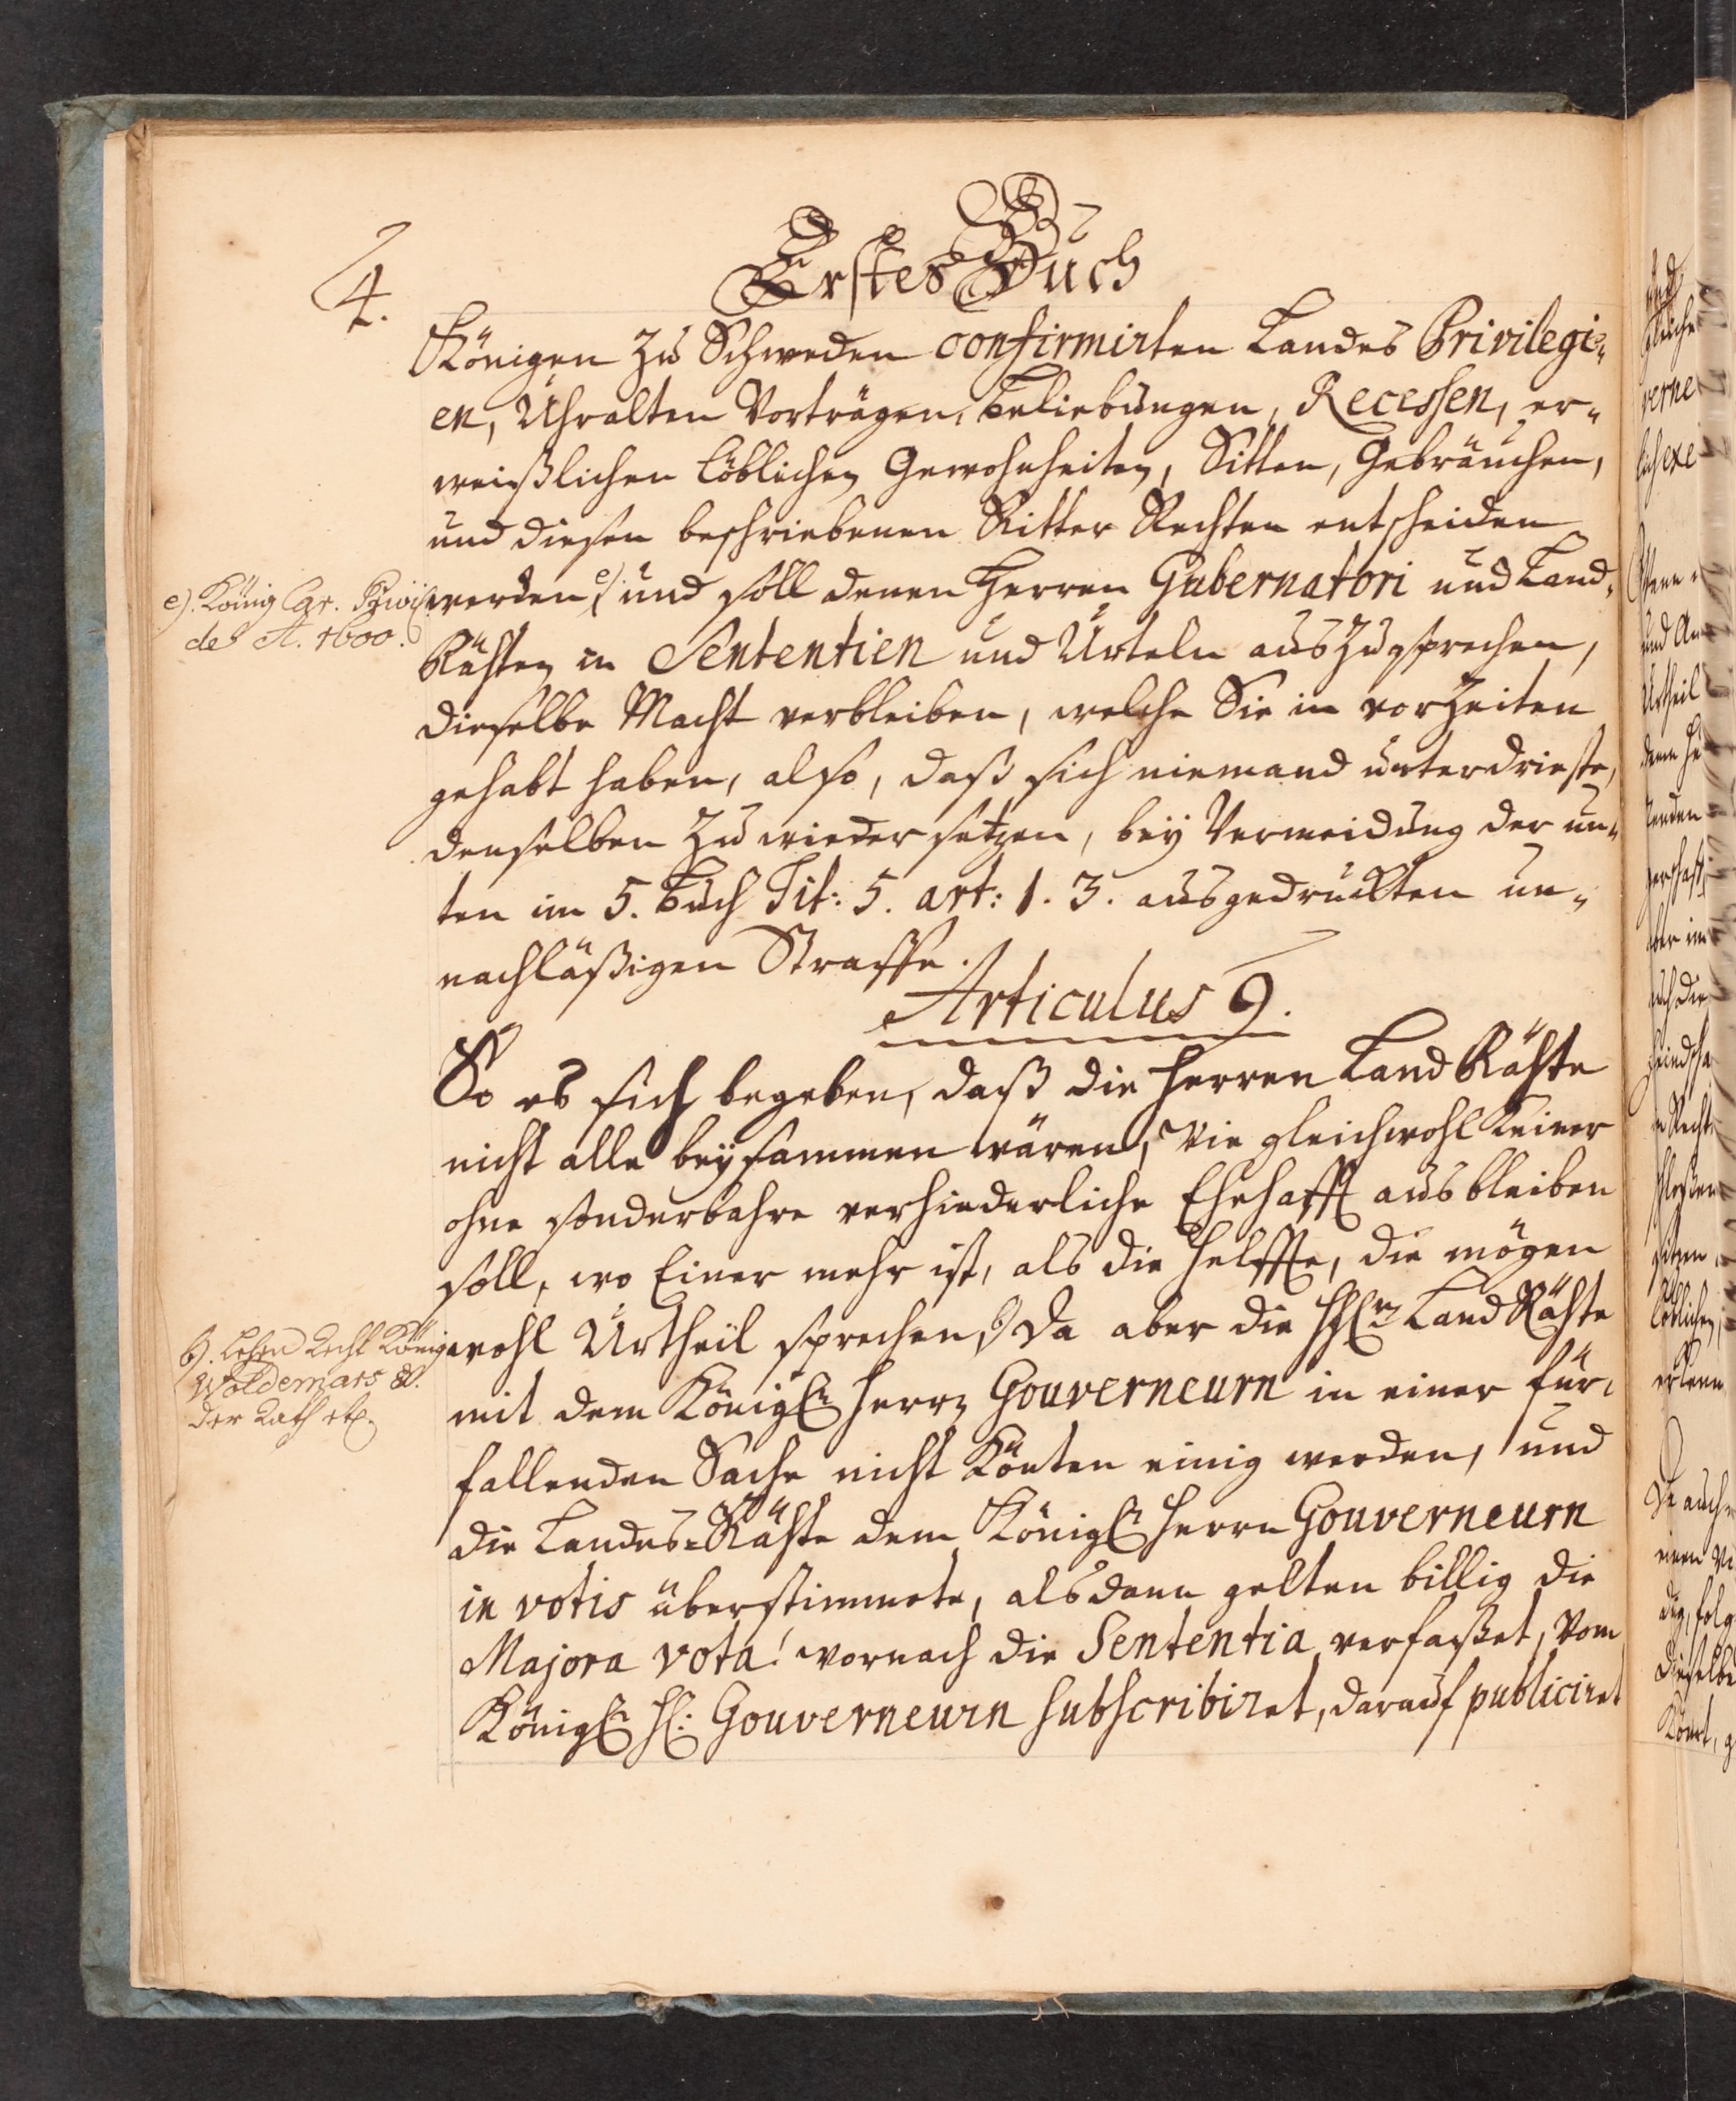 4.
Erstes Buch
Königen zu Schweden confirmirten Landes Privilegi-
en, Uhralten Vorträgen, Beliebungen, Recessen, er-
weißlichen löblichen Gewohnheiten, Sitten, Gebräuchen,
und diesen beschriebenen Ritter Rechten entscheiden
werden, e) und soll denen Herren Gubernatori und Land-
Rähten in Sententien und Urteln auszusprechen,
dieselbe Macht verbleiben, welche Sie in vorzeiten
gehabt haben, also, daß sich niemand unterdrieste,
denselben zu wieder setzen, bey Vermeidung der un-
ten im 5. Buch Tit: 5. art: 1. 3. ausgedruckten un-
nachläßigen Straffe.
e). König Car. Privil.
de A. 1600.
Articulus 9.
So es sich begeben, daß die Herren Land Rähte
nicht alle beysammen wären, wie gleichwohl Keiner
ohne sonderbahre verhinderliche Ehehafft ausbleiben
soll, wo Einer mehr ist, als die Helffte, die mögen
wohl Urtheil sprechen, b) Da aber die HHrn Land Rähte
mit dem Königln Herrn Gouverneurn in einer für-
fallenden Sache nicht Könten einig werden, und
die Landes-Rähte dem Königln Herrn Gouverneurn
in votis überstimmete, alsdann gelten billig die
Majora vota! wornach die Sententia verfaßet, Vom
Königln H: Gouverneurn subscribiret, darauf publiciret
b). Lehen Recht König
Woldemars &.
der Rath etc.